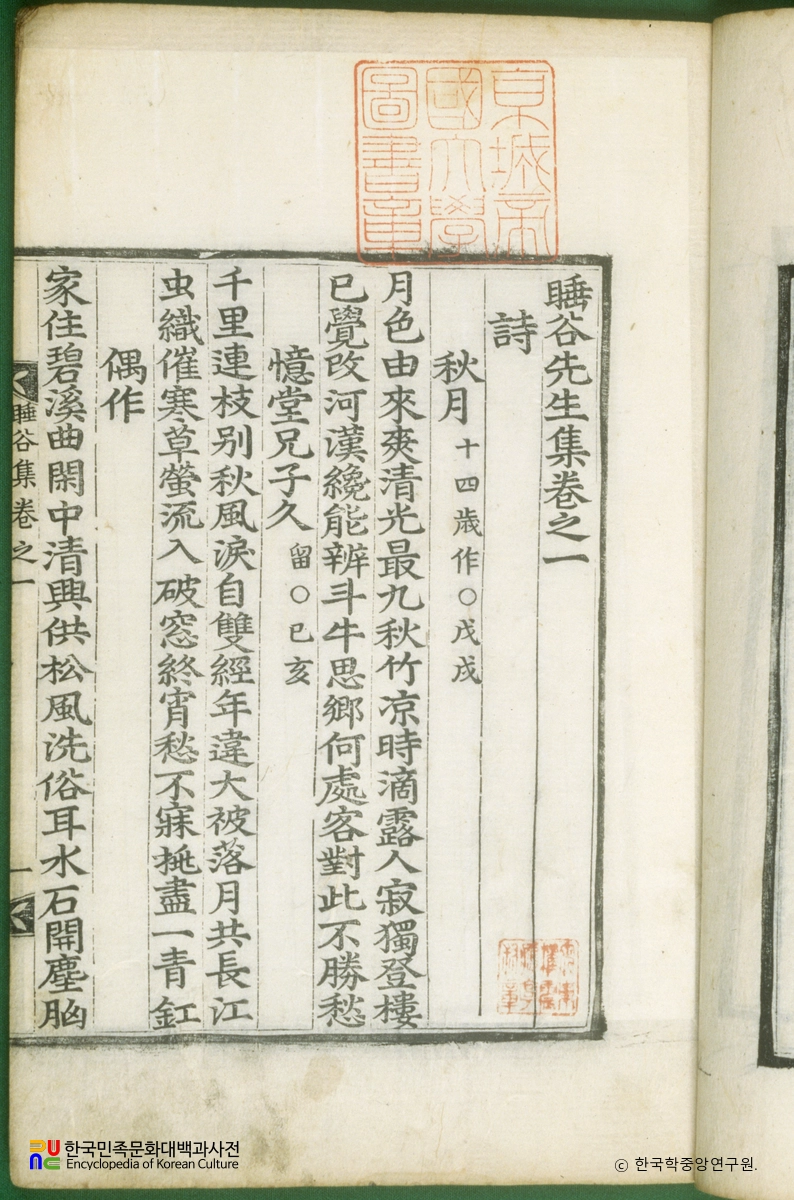 京城帝
國大學
圖書章
睡谷先生集卷之一
詩
秋月 十四歲作○戊戌
月色由來爽清光最九秋竹凉時滴露人寂獨登樓
已覺改河漢纔能辨斗牛思鄉何處客對此不勝愁
憶堂兄子久 留○已亥
千里連枝别秋風淚自雙經年違大被落月共長江
虫織催寒草螢流入破窓終宵愁不寐挑盡一青釭
偶作
家住碧溪曲閑中清興供松風洗俗耳水石開塵胸
睡谷集卷之一 一
한국민족문화대백과사전
Encyclopedia of Korean Culture
ⓒ 한국학중앙연구원.